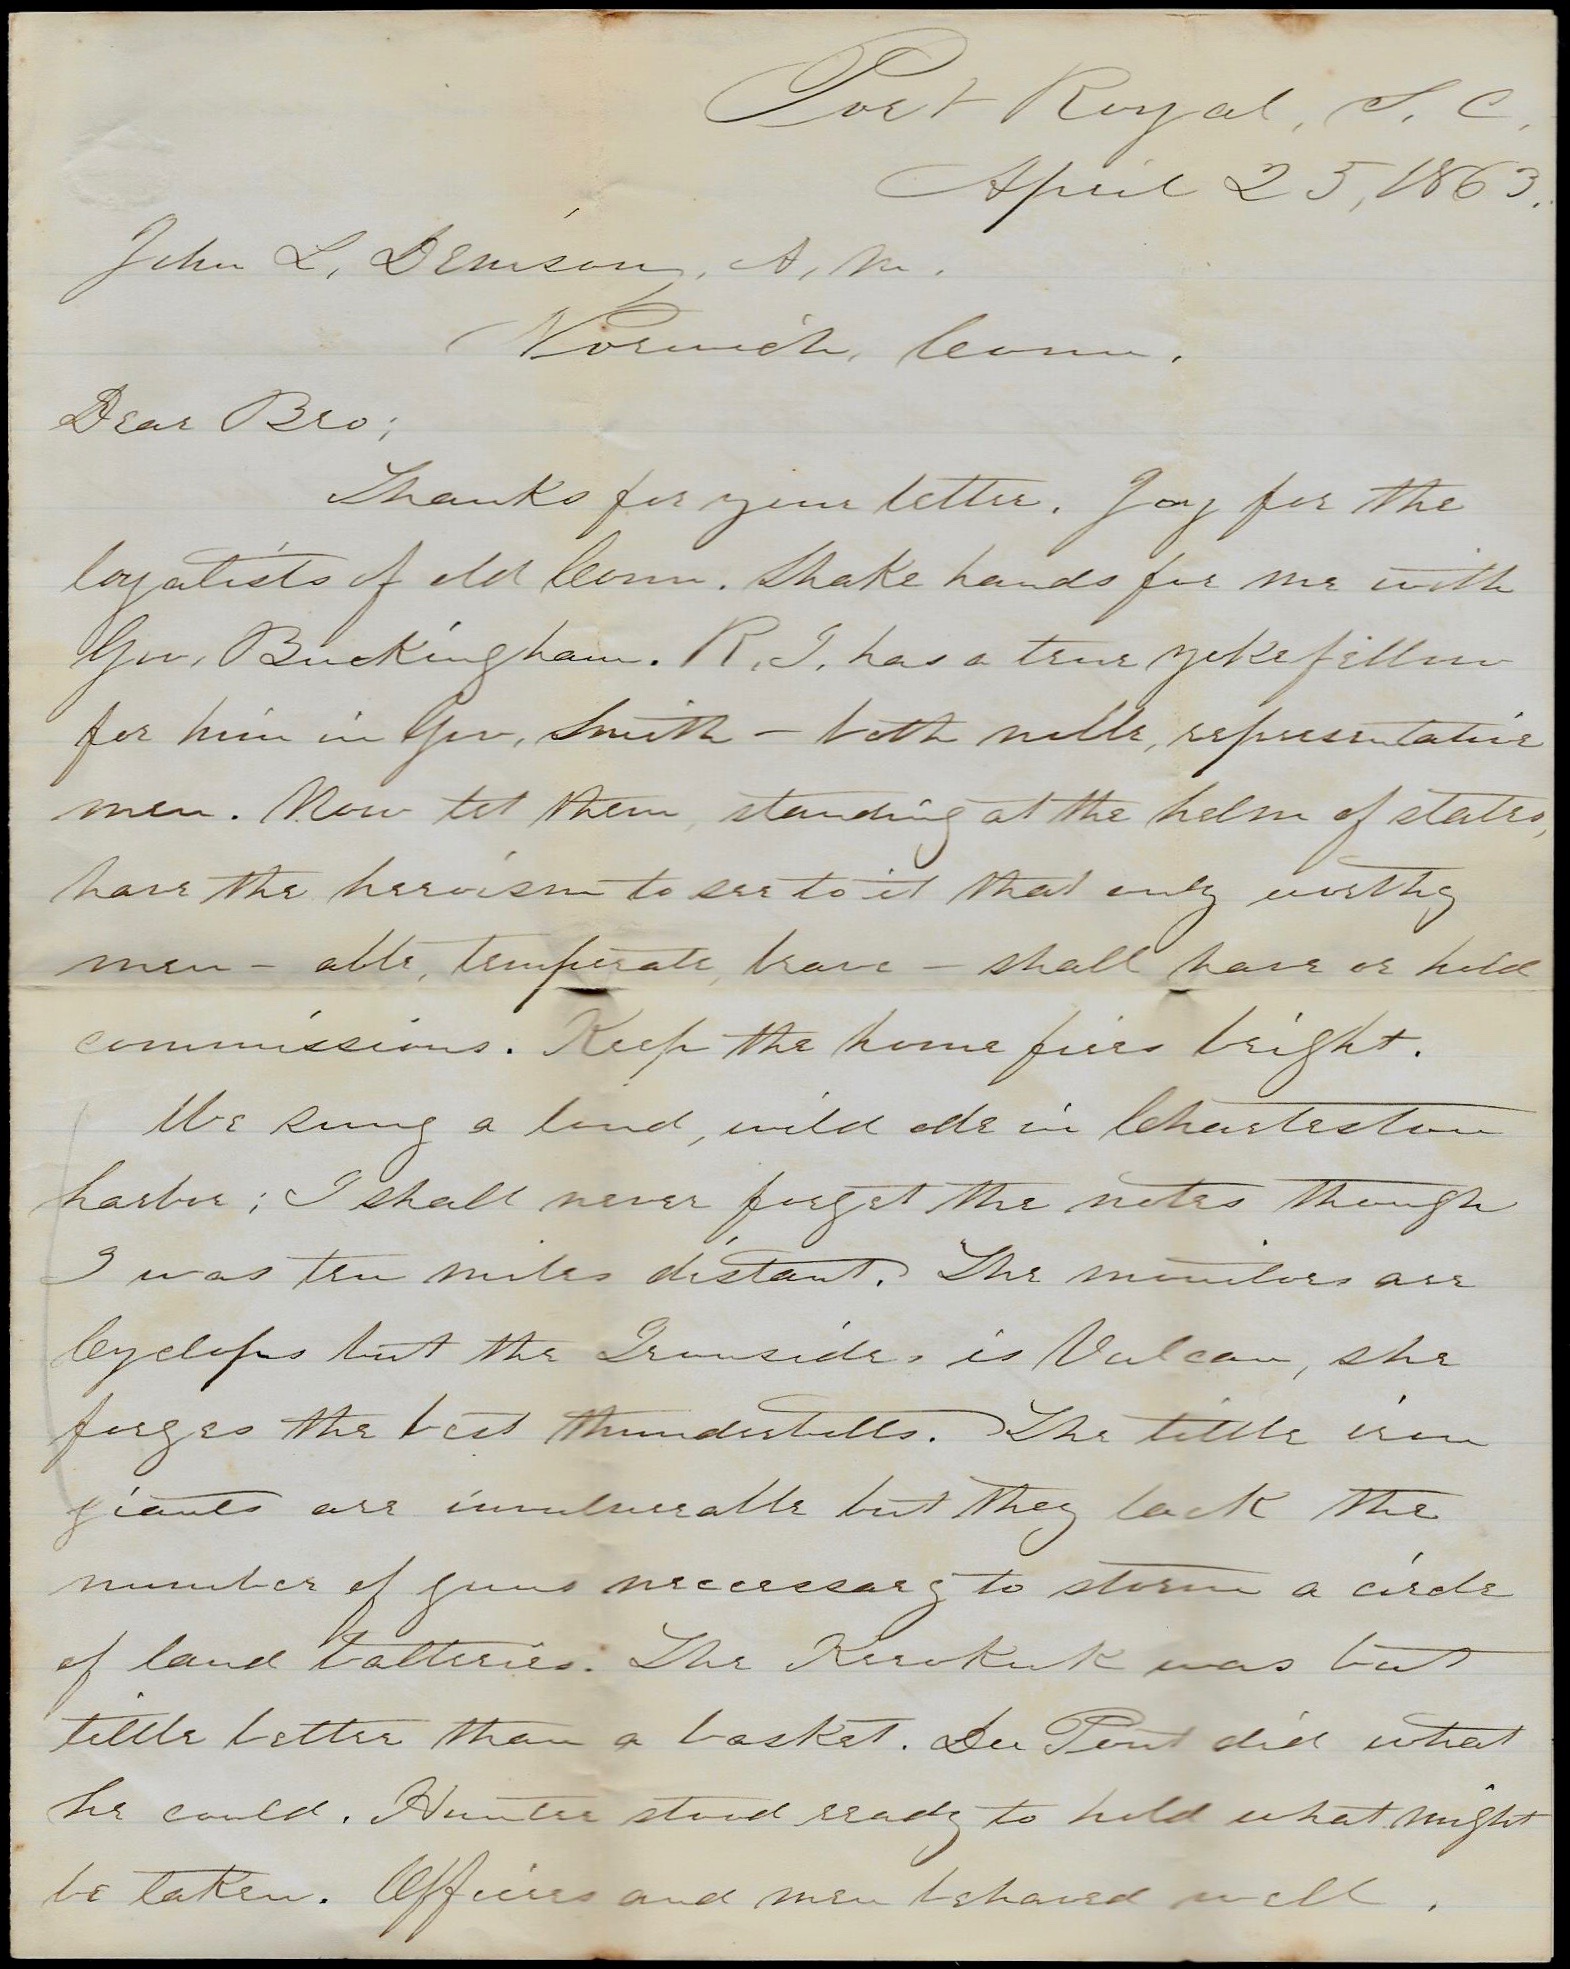 Port Royal, S. C.
April 25, 1863.
John L. Denison, A. M.
Norwich, Conn.
Dear Bro;
Thanks for your letter. Joy for the
loyalists of old Conn. Shake hands for me with
Gov. Buckingham. R. I. has a true yokefellow
for him in Gov. Smith – both noble, representative
men. Now let them, standing at the helm of states,
have the heroism to see to it that only worthy
men – able, temperate, brave – shall have or hold
commissions. Keep the home fires bright.
We sung a loud, wild ode in Charleston
harbor; I shall never forget the notes though
I was ten miles distant. The monitors are
Cyclops but the Ironsides is Vulcan, she
forges the best thunderbolts. The little iron
giants are invulnerable but they lack the
number of guns necessary to storm a circle
of land batteries. The Keokuk was but
little better than a basket. Du Pont did what
he could. Hunter stood ready to hold what might
be taken. Officers and men behaved well.